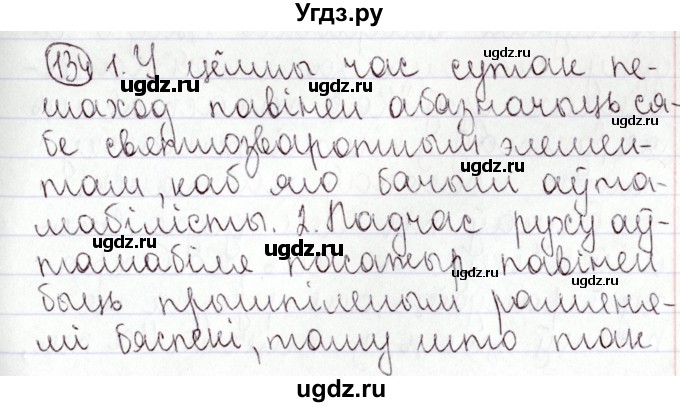 Угдз.ру
134 1. У цёмны час сутак пе-
шаход павінен абазначыць ся-
бе святлозваротным элемен-
там, каб яго бачылі аўта-
мабілісты. 2. Падчас руху аў-
тамабіля пасажыр павінен
быць прышпілены рамяня-
мі бяспекі, таму што так
ugdz.ru
ugdz.ru
ugdz.ru
ugdz.ru
ugdz.ru
ugdz.ru
ugdz.ru
ugdz.ru
ugdz.ru